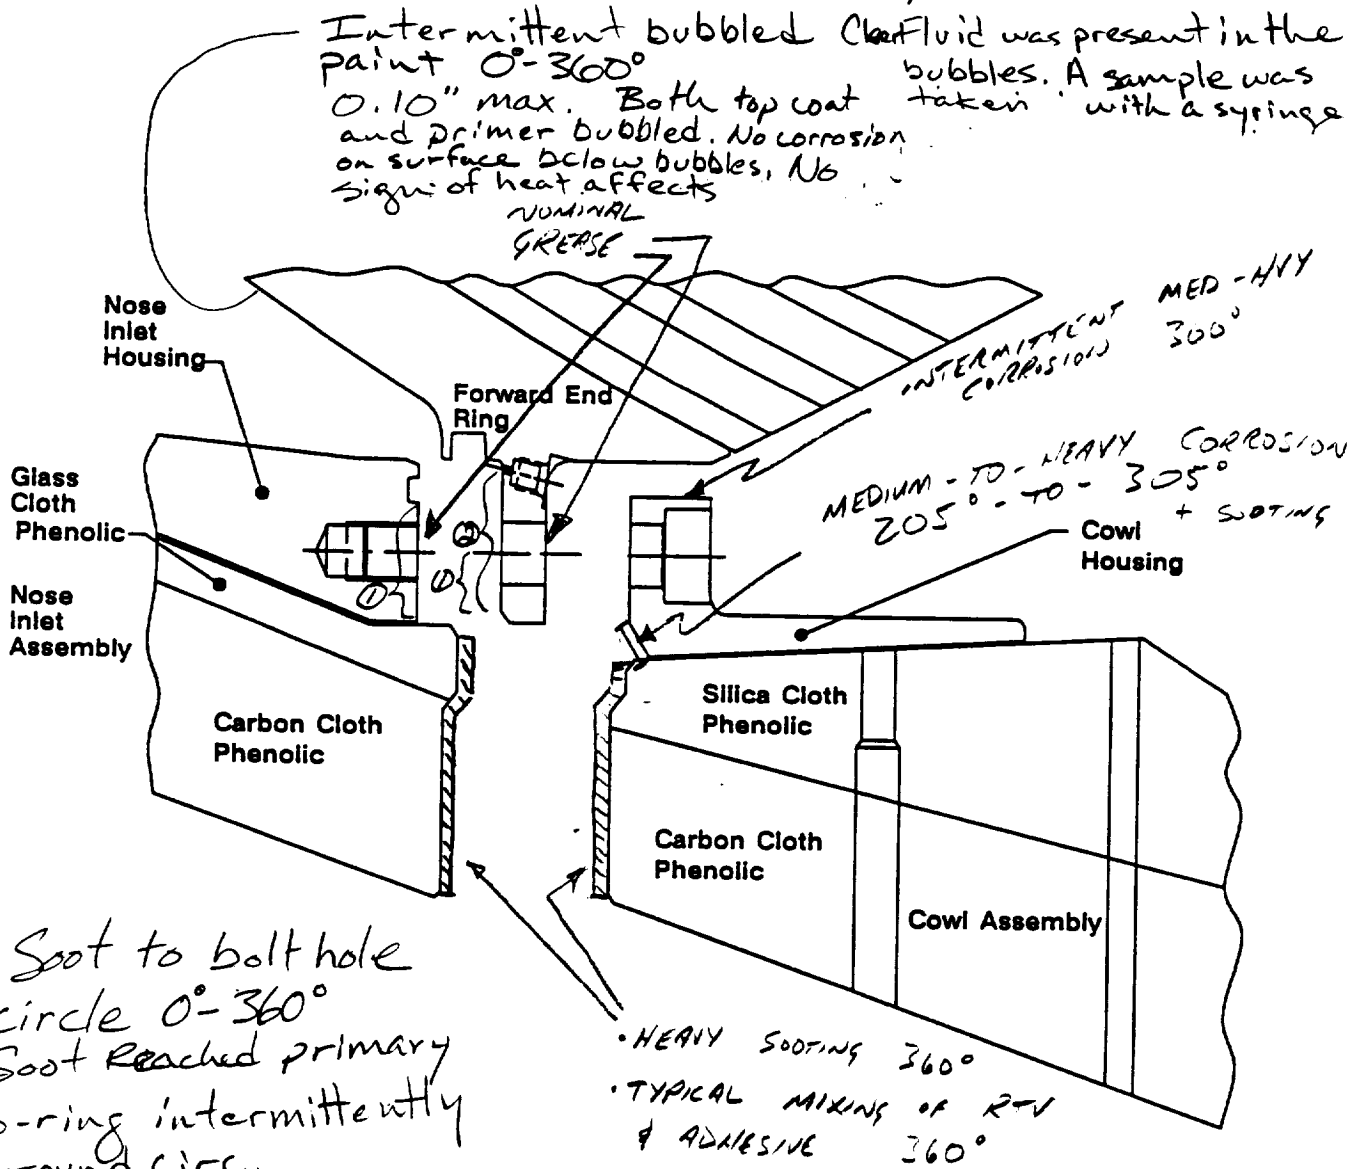 Intermittent bubbled
paint 0°-360°
0.10" max. Both top coat
and primer bubbled. No corrosion
on surface below bubbles, No
sign of heat affects
Clear Fluid was present in the
bubbles. A sample was
taken with a syringe
NOMINAL
GREASE
INTERMITTENT MED-HVY
CORROSION 300°
MEDIUM-TO-HEAVY CORROSION
205°-TO-305°
+ SOOTING
Nose
Inlet
Housing
Forward End
Ring
Glass
Cloth
Phenolic
Nose
Inlet
Assembly
① ① ②
Cowl
Housing
Carbon Cloth
Phenolic
Silica Cloth
Phenolic
Carbon Cloth
Phenolic
Cowl Assembly
Soot to bolt hole
circle 0°-360°
Soot Reached primary
o-ring intermittently
• HEAVY SOOTING 360°
• TYPICAL MIXING OF RTV
& ADHESIVE 360°